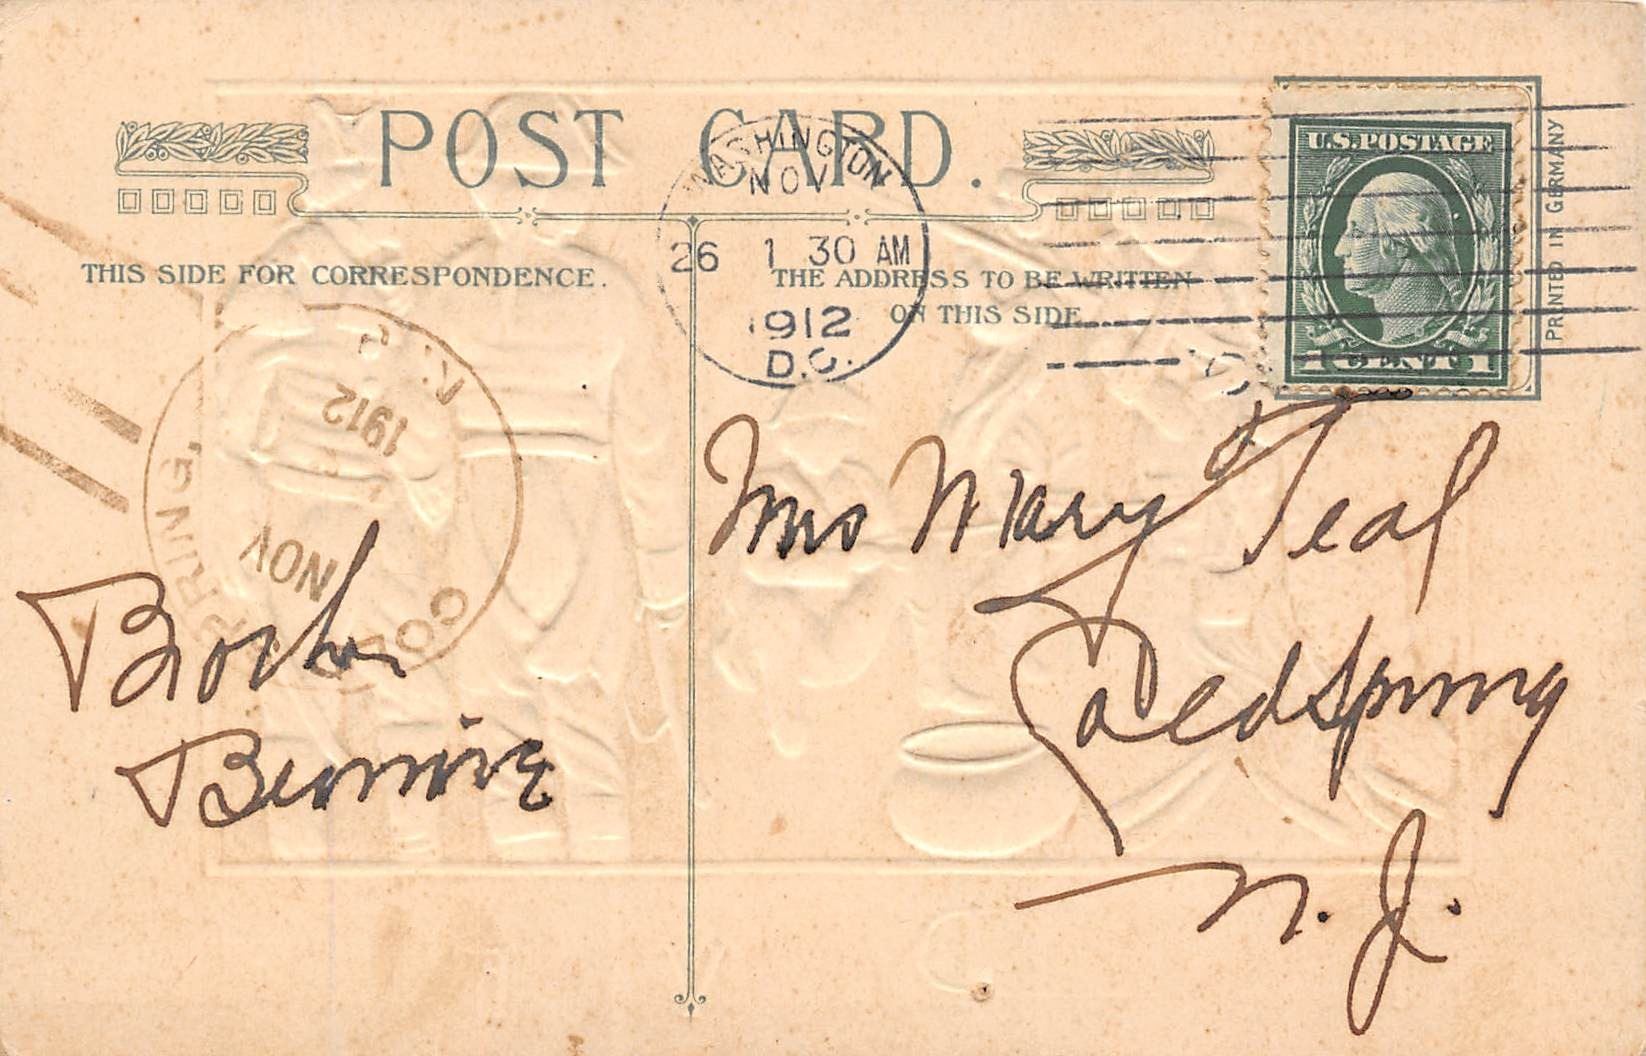 POST CARD.
WASHINGTON
NOV
26 1 30 AM
1912
D.C.
U.S. POSTAGE
1 CENT 1
PRINTED IN GERMANY
THIS SIDE FOR CORRESPONDENCE.
THE ADDRESS TO BE WRITTEN
ON THIS SIDE
NOV
1912
Mrs Mary Teal
Coldspring
N. J.